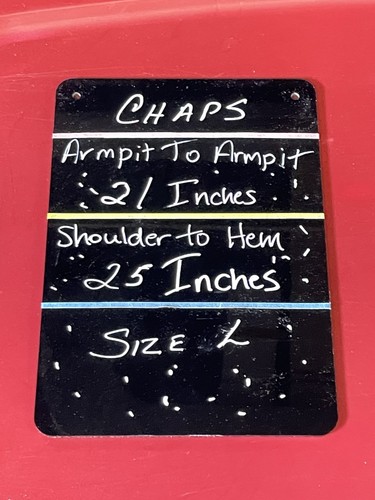 CHAPS
Armpit To Armpit
21 Inches
Shoulder to Hem
25 Inches
SIZE L